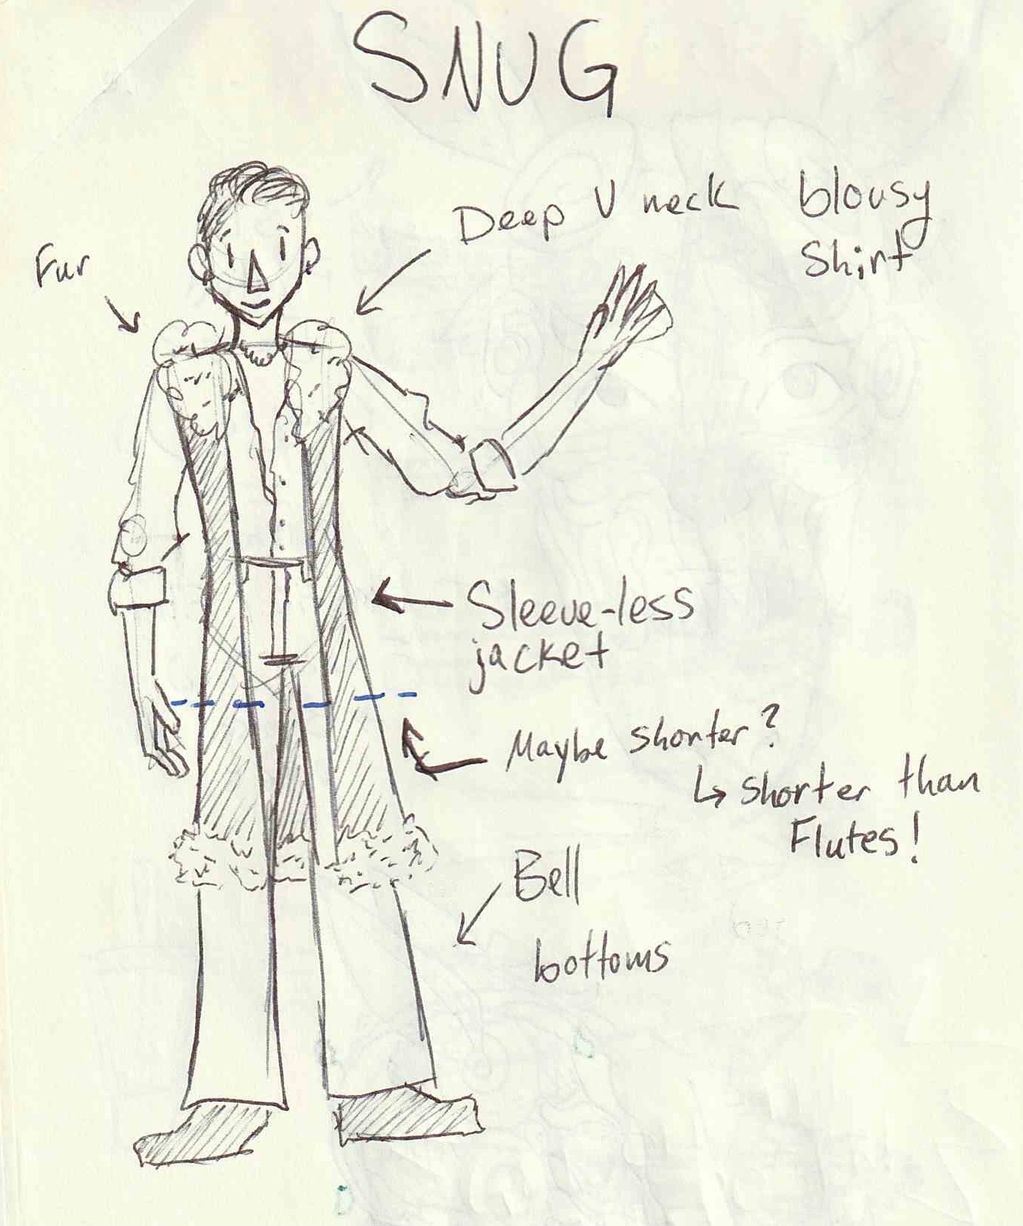 SNUG
Deep V neck blousy
Shirt
Fur
Sleeve-less
jacket
Maybe shorter?
↳ shorter than
Flutes!
Bell
bottoms